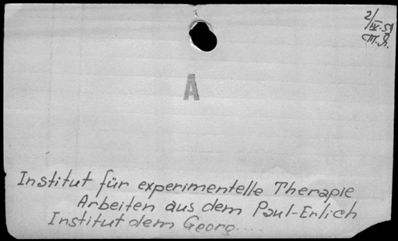 2/IX-51
A
Institut für experimentelle Therapie
Arbeiten aus dem Paul-Erlich
Institut dem Georg....